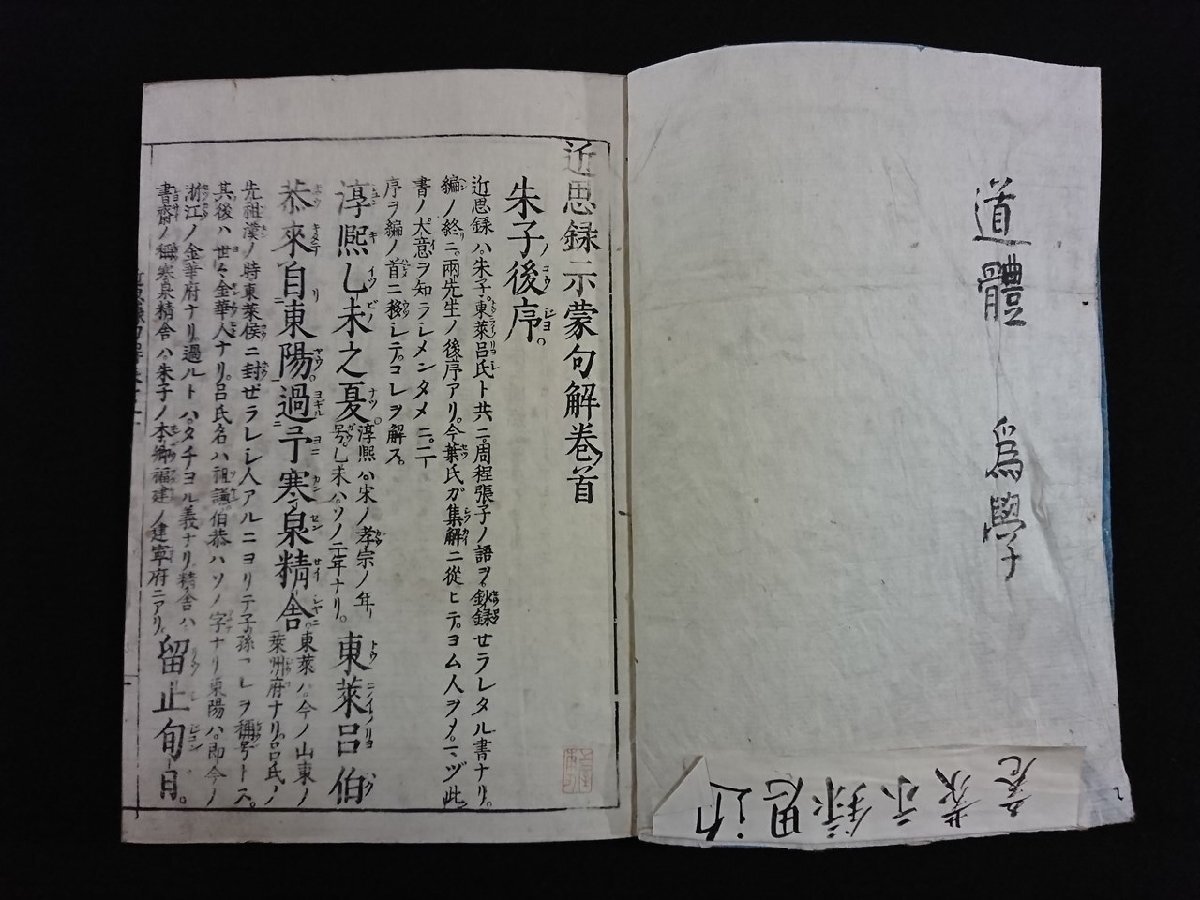 道體　爲學
近思録示蒙
近思録示蒙句解巻首
朱子後序。
近思録ハ。朱子。東萊呂氏ト共ニ。周程張子ノ語ヲ。鈔録セラレタル書ナリ。
編ノ終ニ。兩先生ノ後序アリ。今葉氏ガ集解ニ從ヒテ。ヨム人ヲメ。マヅ此
書ノ大意ヲ知ラシメンタメニ。
序ヲ編ノ首ニ移シテ。コレヲ解ス。
淳熙乙未之夏。淳熙ハ。宋ノ孝宗ノ年號。乙未ハ。ソノ二年ナリ。東萊呂伯
恭來自東陽。過予寒泉精舍。東萊ハ。今ノ山東ノ萊州府ナリ。呂氏ノ
先祖漢ノ時東萊侯ニ封ゼラレシ人アルニヨリテ子孫コレヲ稱號トス。
其後ハ世々金華人ナリ。呂氏名ハ祖謙。伯恭ハソノ字ナリ東陽ハ。即今ノ
浙江ノ金華府ナリ過ルトハ。タチヨル義ナリ精舍ハ。
書齋ノ稱寒泉精舍ハ。朱子ノ本郷福建ノ建寧府ニアリ。留止旬日。